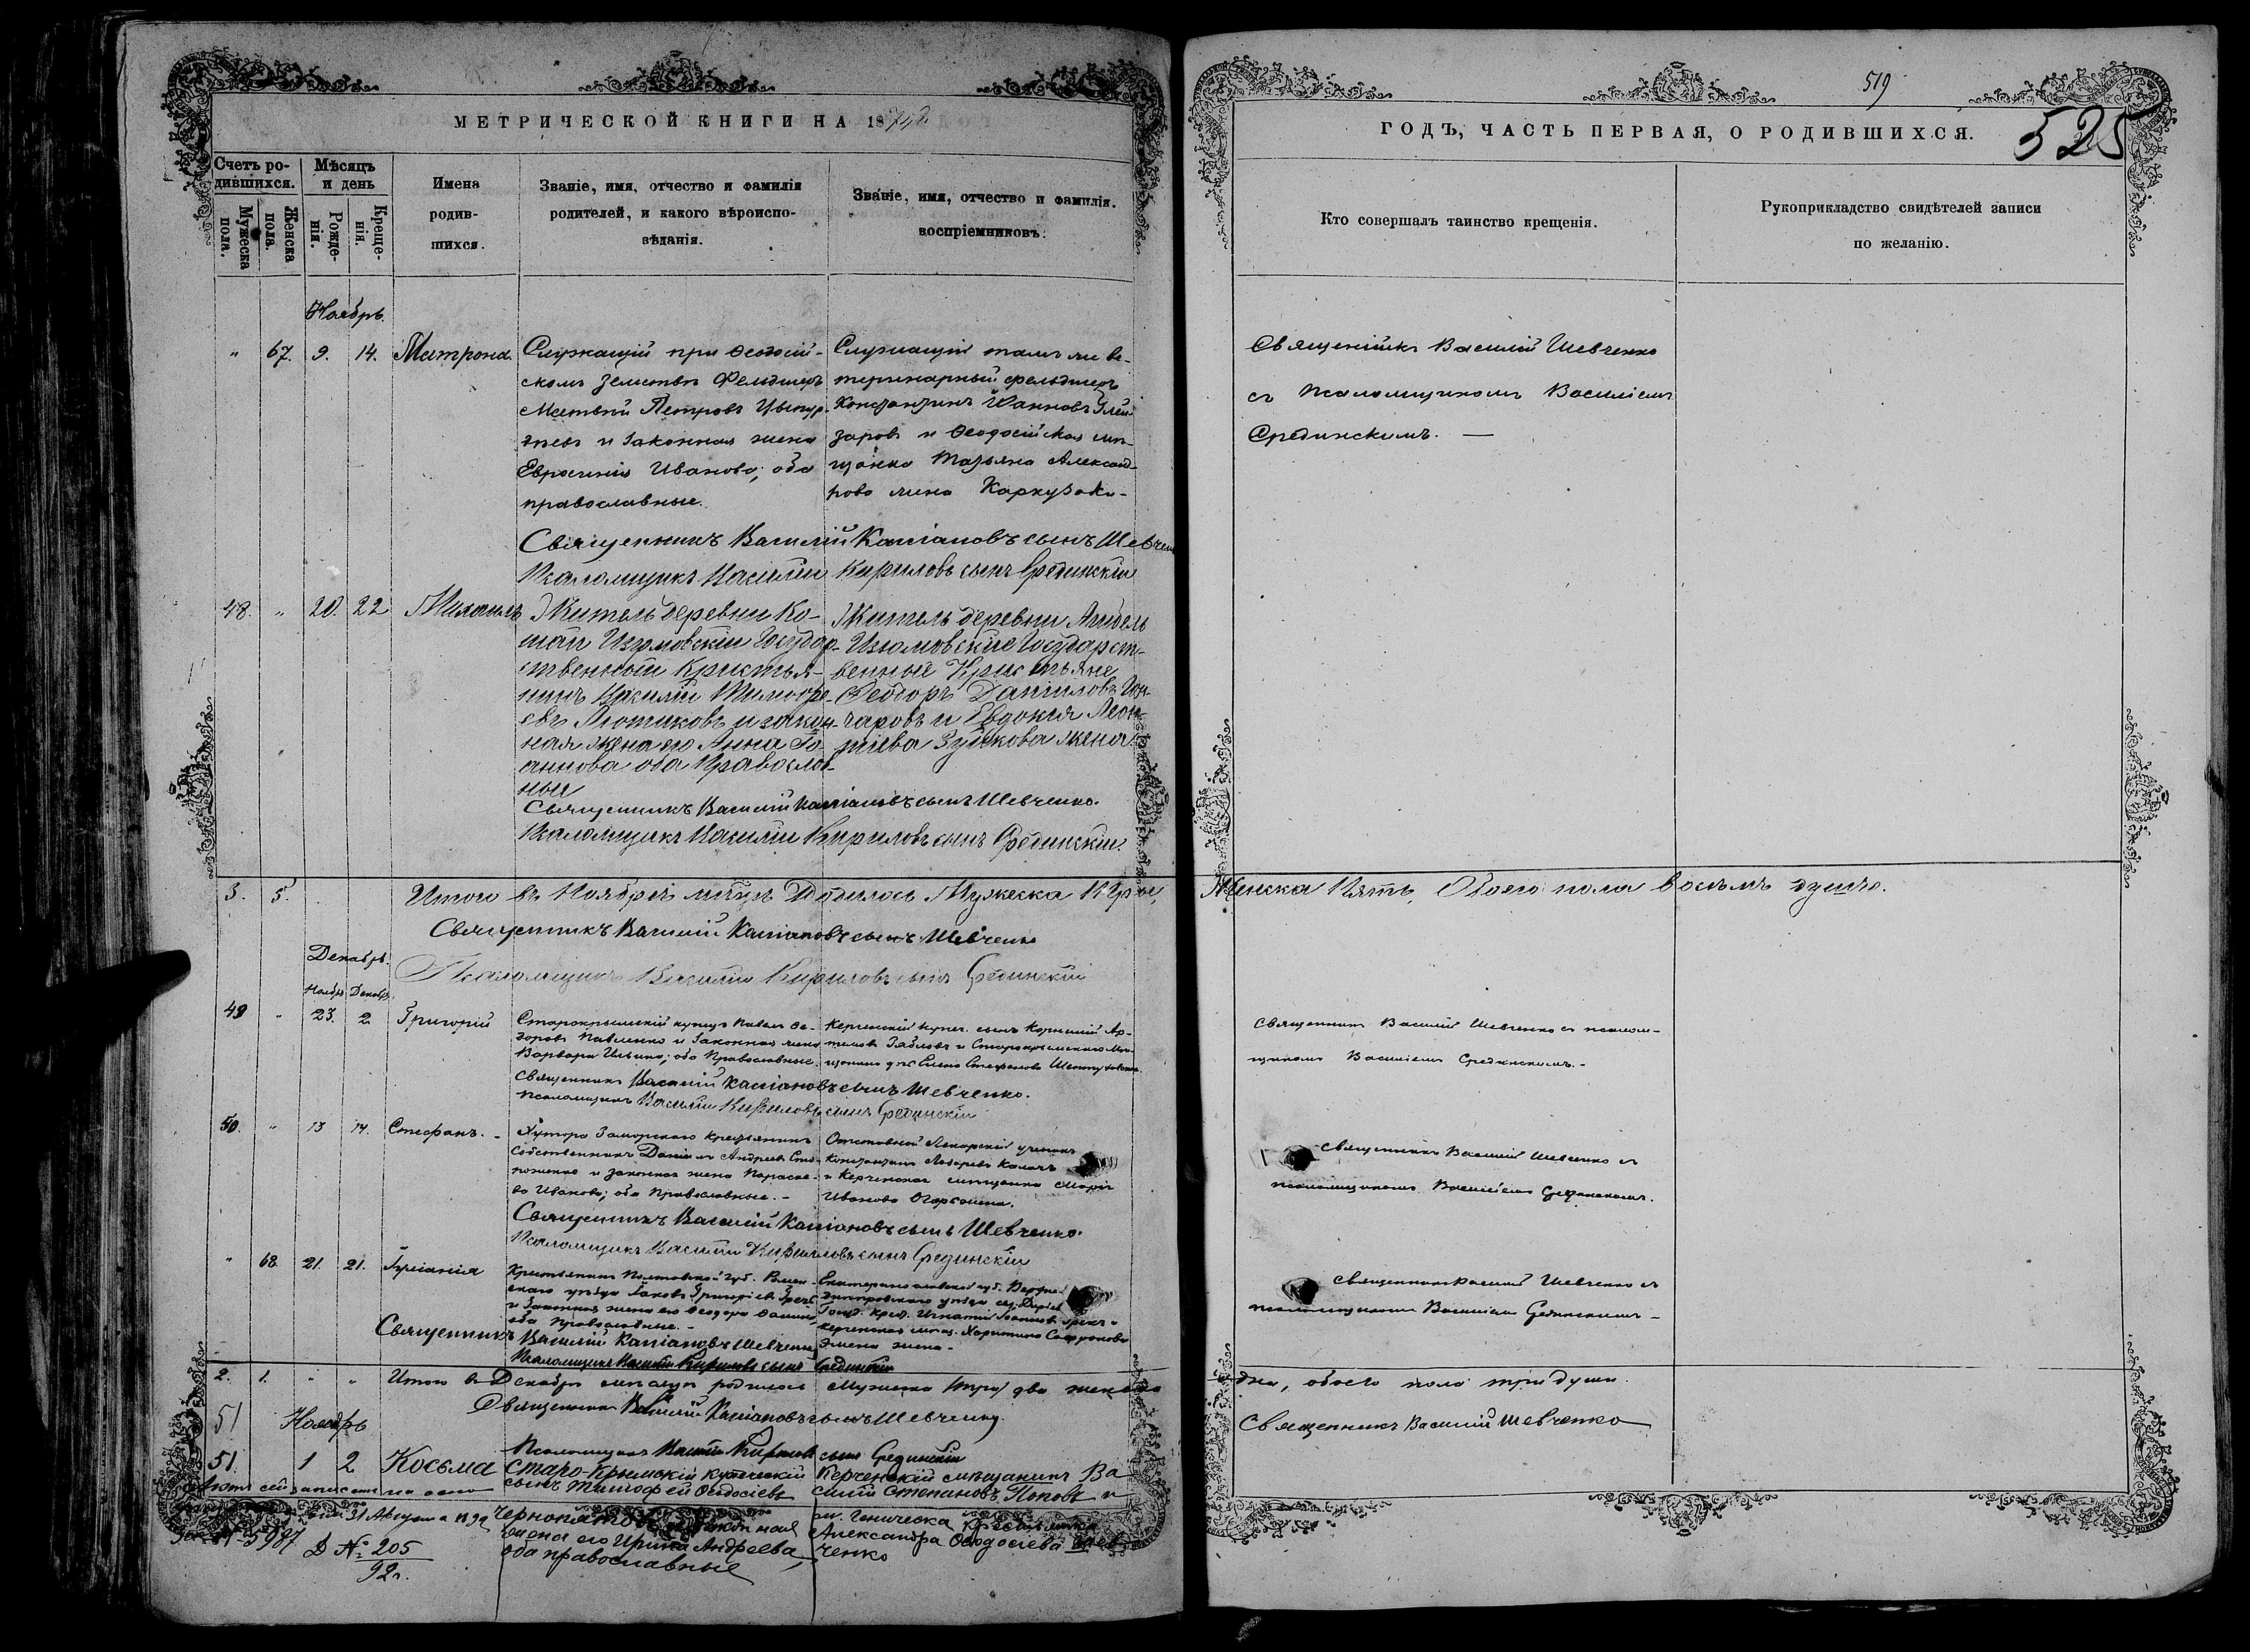 МЕТРИЧЕСКОЙ КНИГИ НА 187
Счетъ ро-
дившихся.
Мѣсяцъ
и день
Мужеска
пола.
Женска
пола.
Рожде-
нія.
Креще-
нія.
Имена
родив-
шихся.
Званіе, имя, отчество и фамилія
родителей, и какого вѣроиспо-
вѣданія.
Званіе, имя, отчество и фамилія.
воспріемниковъ.
Ноябрь
" 67. 9. 14. Матрона
Служащій при Ѳеодосій-
скомъ земствѣ Фельдшеръ
Матвѣй Петровъ
и законная жена
Иванова, оба
православные.
Служащій тамъ же ве-
теринарный фельдшеръ
Константинъ Іоанновъ
и Ѳеодосійская мѣ-
щанка Татьяна Александ-
рова жена
Священникъ Василій Кассіановъ сынъ Шевченко
Псаломщикъ Василій Кириловъ сынъ Срединскій
48. " 20. 22 Михаилъ
Житель деревни Ко-
шай Изюмовскій Государ-
ственный Кристья-
нинъ Василій Тимофе-
евъ Лютиковъ и закон-
ная жена его Анна Іо-
аннова оба Православ-
ные
Житель деревни
Изюмовские Государст-
венные Кристьяне
Ѳеодоръ Даниловъ Гон-
чаровъ и Евдокия Леон-
тіева Зуйкова жена
Священникъ Василій Кассіановъ сынъ Шевченко.
Псаломщикъ Василій Кириловъ сынъ Срединскій.
3. 5. Итого въ Ноябрѣ мѣсяцѣ Родилось Мужеска трое,
Священникъ Василій Кассіановъ сынъ Шевченко
Декабрь.
Псаломщикъ Василій Кириловъ сынъ Срединскій
Ноябр. Декабр.
49 " 23. 2 Григорій
Старокрымскій купецъ Павелъ Ѳе-
доровъ Павленко и законная жена
Варвара Ильина; оба Православные.
Керченскій купеч. сынъ Корнилій Ар-
темовъ и Старокрымскаго
Елена Стефанова
Священникъ Василій Кассіановъ сынъ Шевченко.
Псаломщикъ Василій Кириловъ сынъ Срединскій
50. " 13 14. Стефанъ.
Хутора Заморскаго крестьянинъ
собственникъ Даніилъ Андреевъ
и законная жена Параске-
ва Иванова; оба Православные.
Отставной Лекарскій ученикъ
Константинъ Лазаревъ
и Керченская мѣщанка Марія
Иванова
Священникъ Василій Кассіановъ сынъ Шевченко.
Псаломщикъ Василій Кириловъ сынъ Срединскій
" 68. 21. 21. Іуліанія
Крестьянинъ Полтавской губ.
уѣзда Іаковъ Григоріевъ
и законная жена его Ѳеодора
оба Православные.
Екатеринославской губ. Верхне-
днѣпровскаго уѣзда
Госуд. крест. Игнатій Іоанновъ
Керченская мѣщ. Харитина Софронова
жена
Священникъ Василій Кассіановъ Шевченко
Псаломщикъ Василій Кириловъ сынъ Срединскій
2. 1. " " Итого въ Декабрѣ мѣсяцѣ родилось Мужеска два женска
Священникъ Василій Кассіановъ сынъ Шевченко.
51 Ноябрь
Псаломщикъ Василій Кириловъ сынъ Срединскій
51. 1 2 Косьма
Старо-Крымскій купеческій
сынъ Тимофей Ѳеодосіевъ
законная
жена его Ирина Андреева,
оба православные
Керченскій мѣщанинъ Ва
силій Степановъ Поповъ и
Геническа
Александра Ѳеодосіева
ченко
31 Августа
Д № 205
92 г.
519
525
ГОДЪ, ЧАСТЬ ПЕРВАЯ, О РОДИВШИХСЯ.
Кто совершалъ таинство крещенія.
Рукоприкладство свидѣтелей записи
по желанію.
Священникъ Василій Шевченко
съ Псаломщикомъ Василіемъ
Срединскимъ. —
Женска Пять, Обоего пола восемъ душъ.
Священникъ Василій Шевченко съ псалом-
щикомъ Василіемъ Срединскимъ. -
Священникъ Василій Шевченко съ
псаломщикомъ Василіемъ Срединскимъ.
Священникъ Василій Шевченко съ
псаломщикомъ Василіемъ Срединскимъ -
одна, обоего пола три души.
Священникъ Василій Шевченко